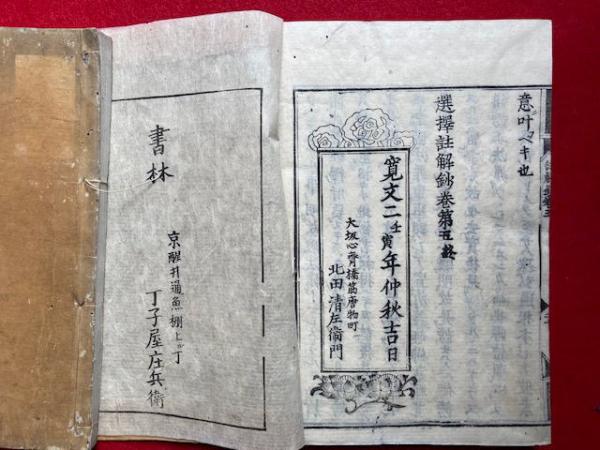 意叶ベキ也
選擇註解鈔卷第五終
寛文二壬寅年仲秋吉日
大坂心斉橋筋唐物町
北田清左衛門
書林
京醒井通魚棚上ル丁
丁子屋庄兵衛